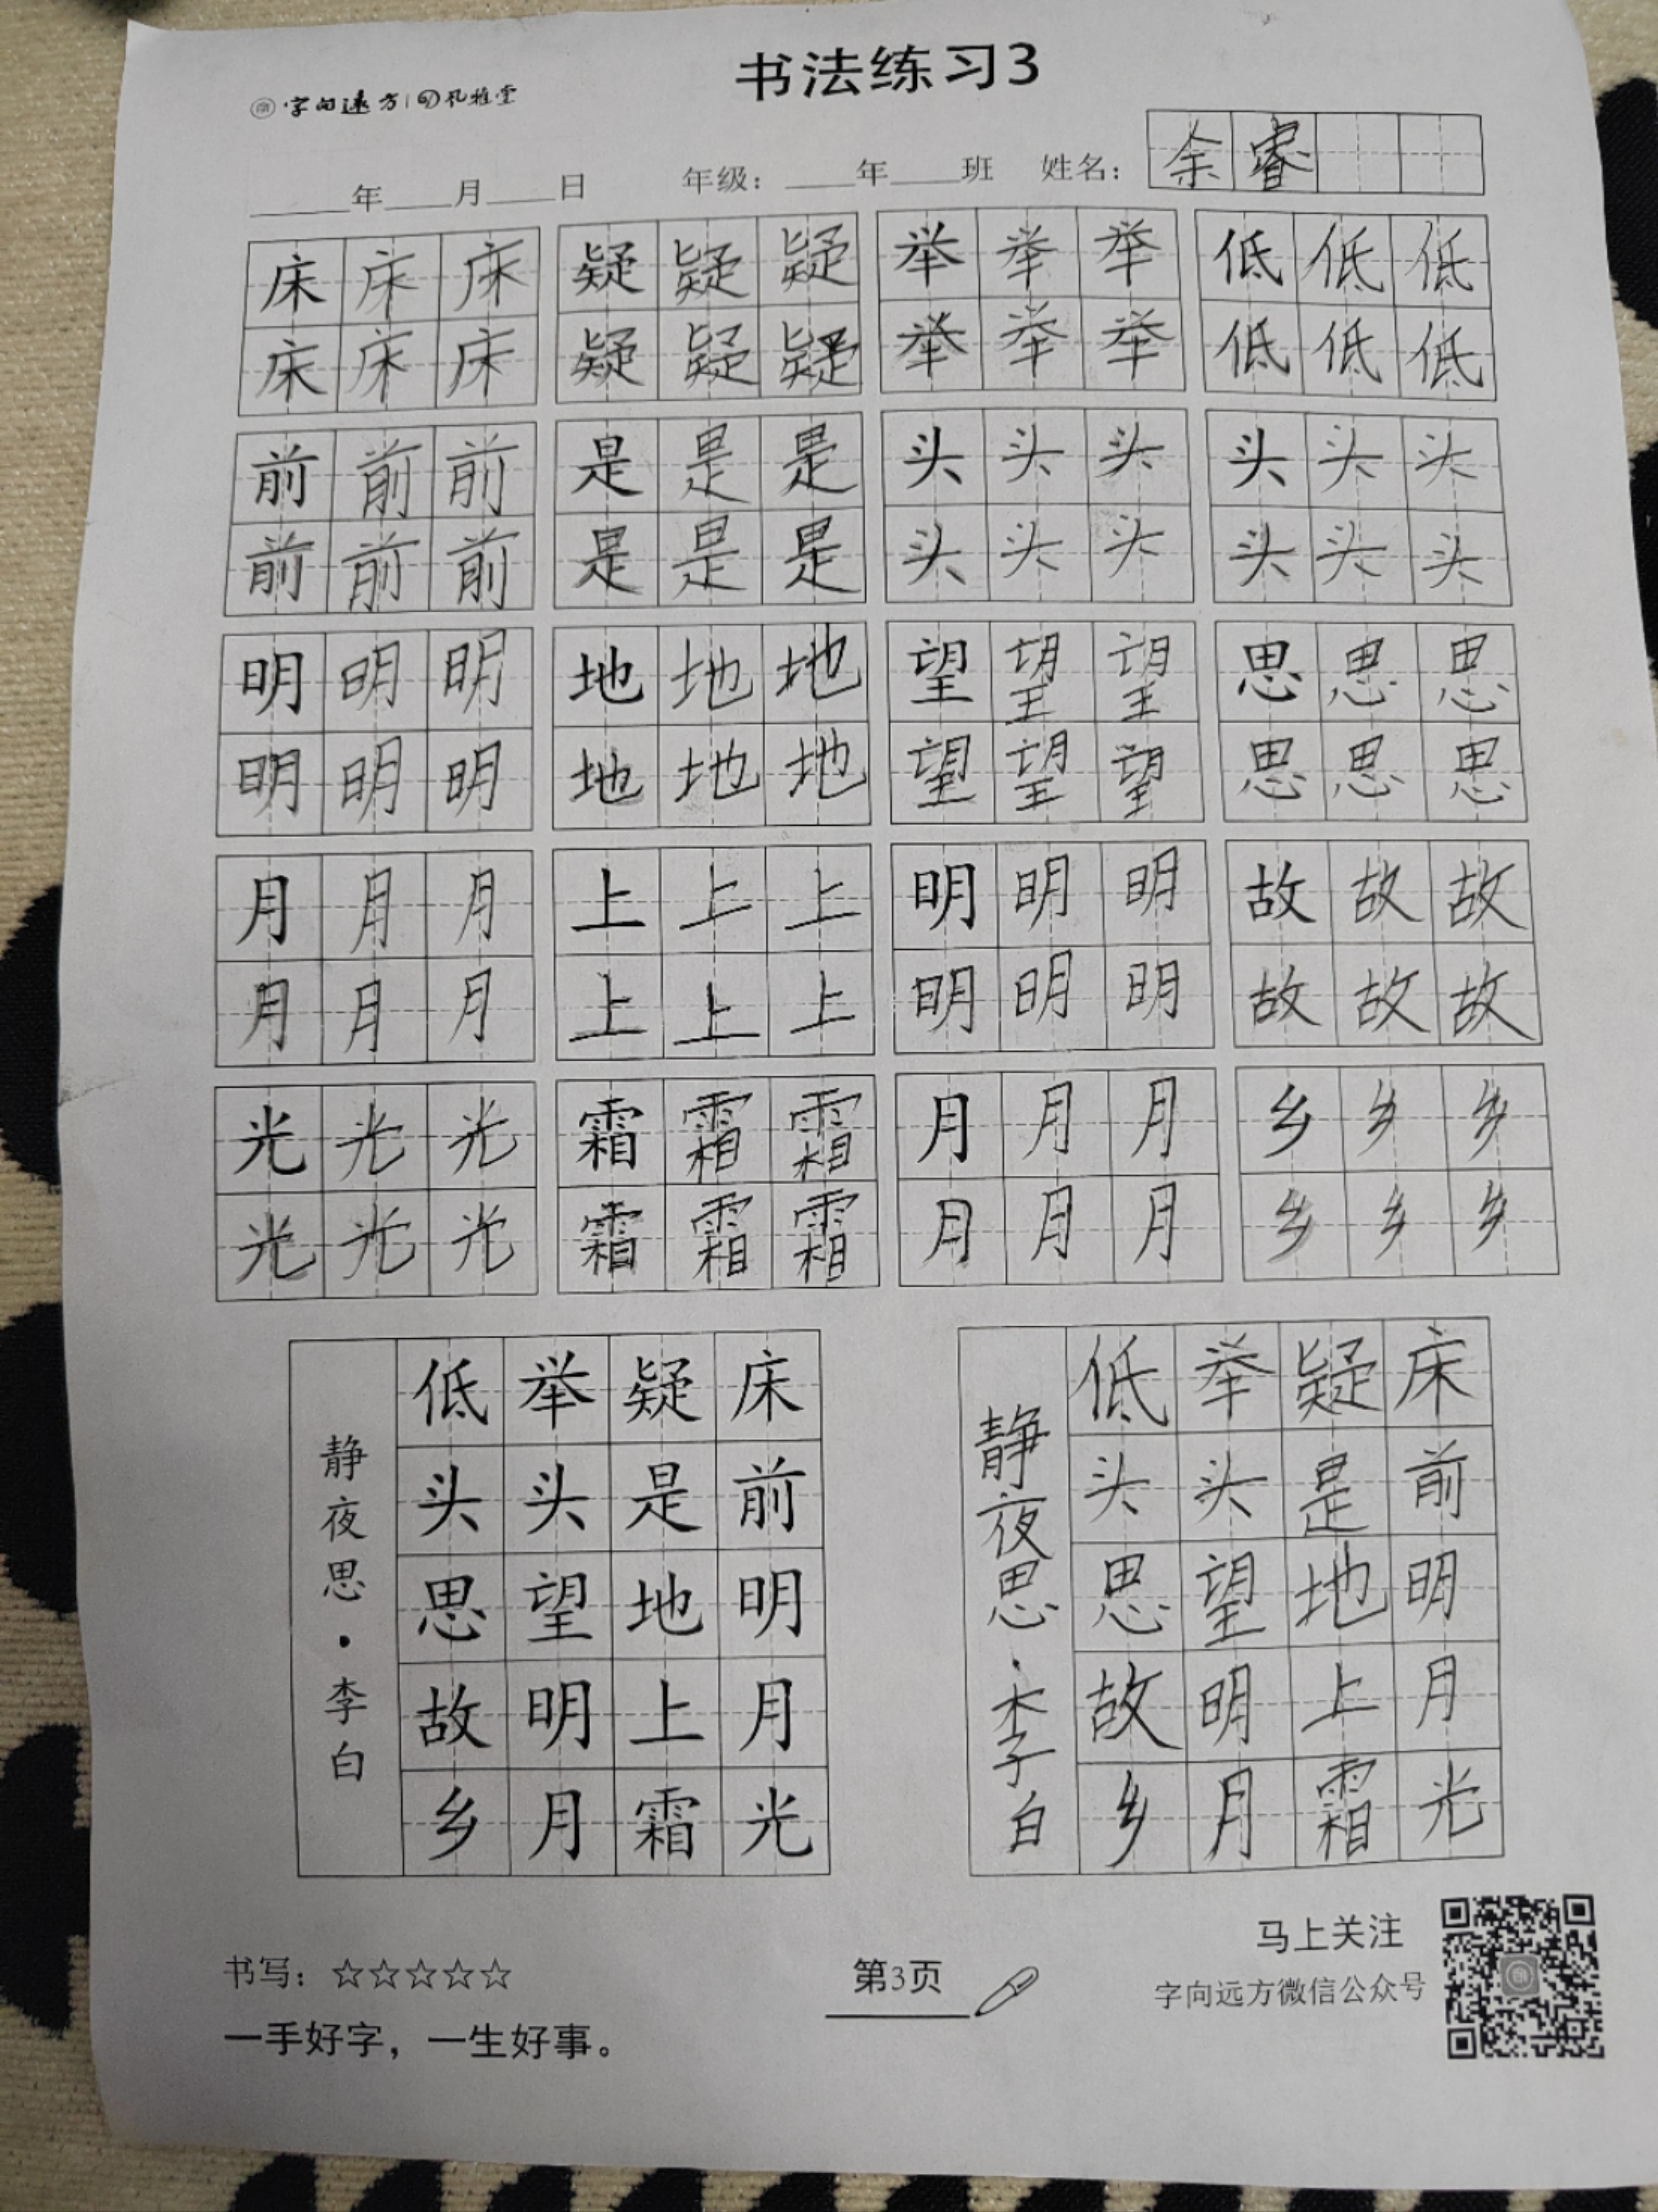 书法练习3
字向远方 孔雅堂
年 月 日 年级: 年 班 姓名: 余睿
床床床 疑疑疑 举举举 低低低
床床床 疑疑疑 举举举 低低低
前前前 是是是 头头头 头头头
前前前 是是是 头头头 头头头
明明明 地地地 望望望 思思思
明明明 地地地 望望望 思思思
月月月 上上上 明明明 故故故
月月月 上上上 明明明 故故故
光光光 霜霜霜 月月月 乡乡乡
光光光 霜霜霜 月月月 乡乡乡
床前明月光
疑是地上霜
举头望明月
低头思故乡
静夜思·李白
床前明月光
疑是地上霜
举头望明月
低头思故乡
静夜思·李白
书写: ☆☆☆☆☆
一手好字，一生好事。
第3页
马上关注
字向远方微信公众号